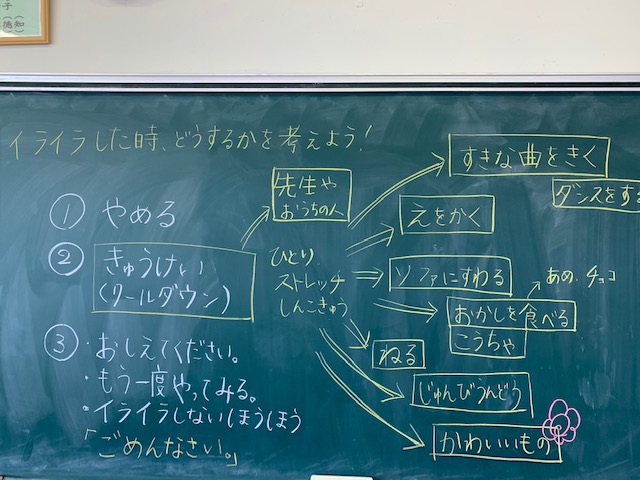 イライラした時、どうするかを考えよう!
① やめる
② きゅうけい
(クールダウン)
③ ・おしえてください。
・もう一度やってみる。
・イライラしないほうほう
「ごめんなさい。」
先生や
おうちの人
ひとり
ストレッチ
しんこきゅう
すきな曲をきく
ダンスをする
えをかく
ソファにすわる
あめ・チョコ
おかしを食べる
こうちゃ
ねる
じゅんびうんどう
かわいいもの